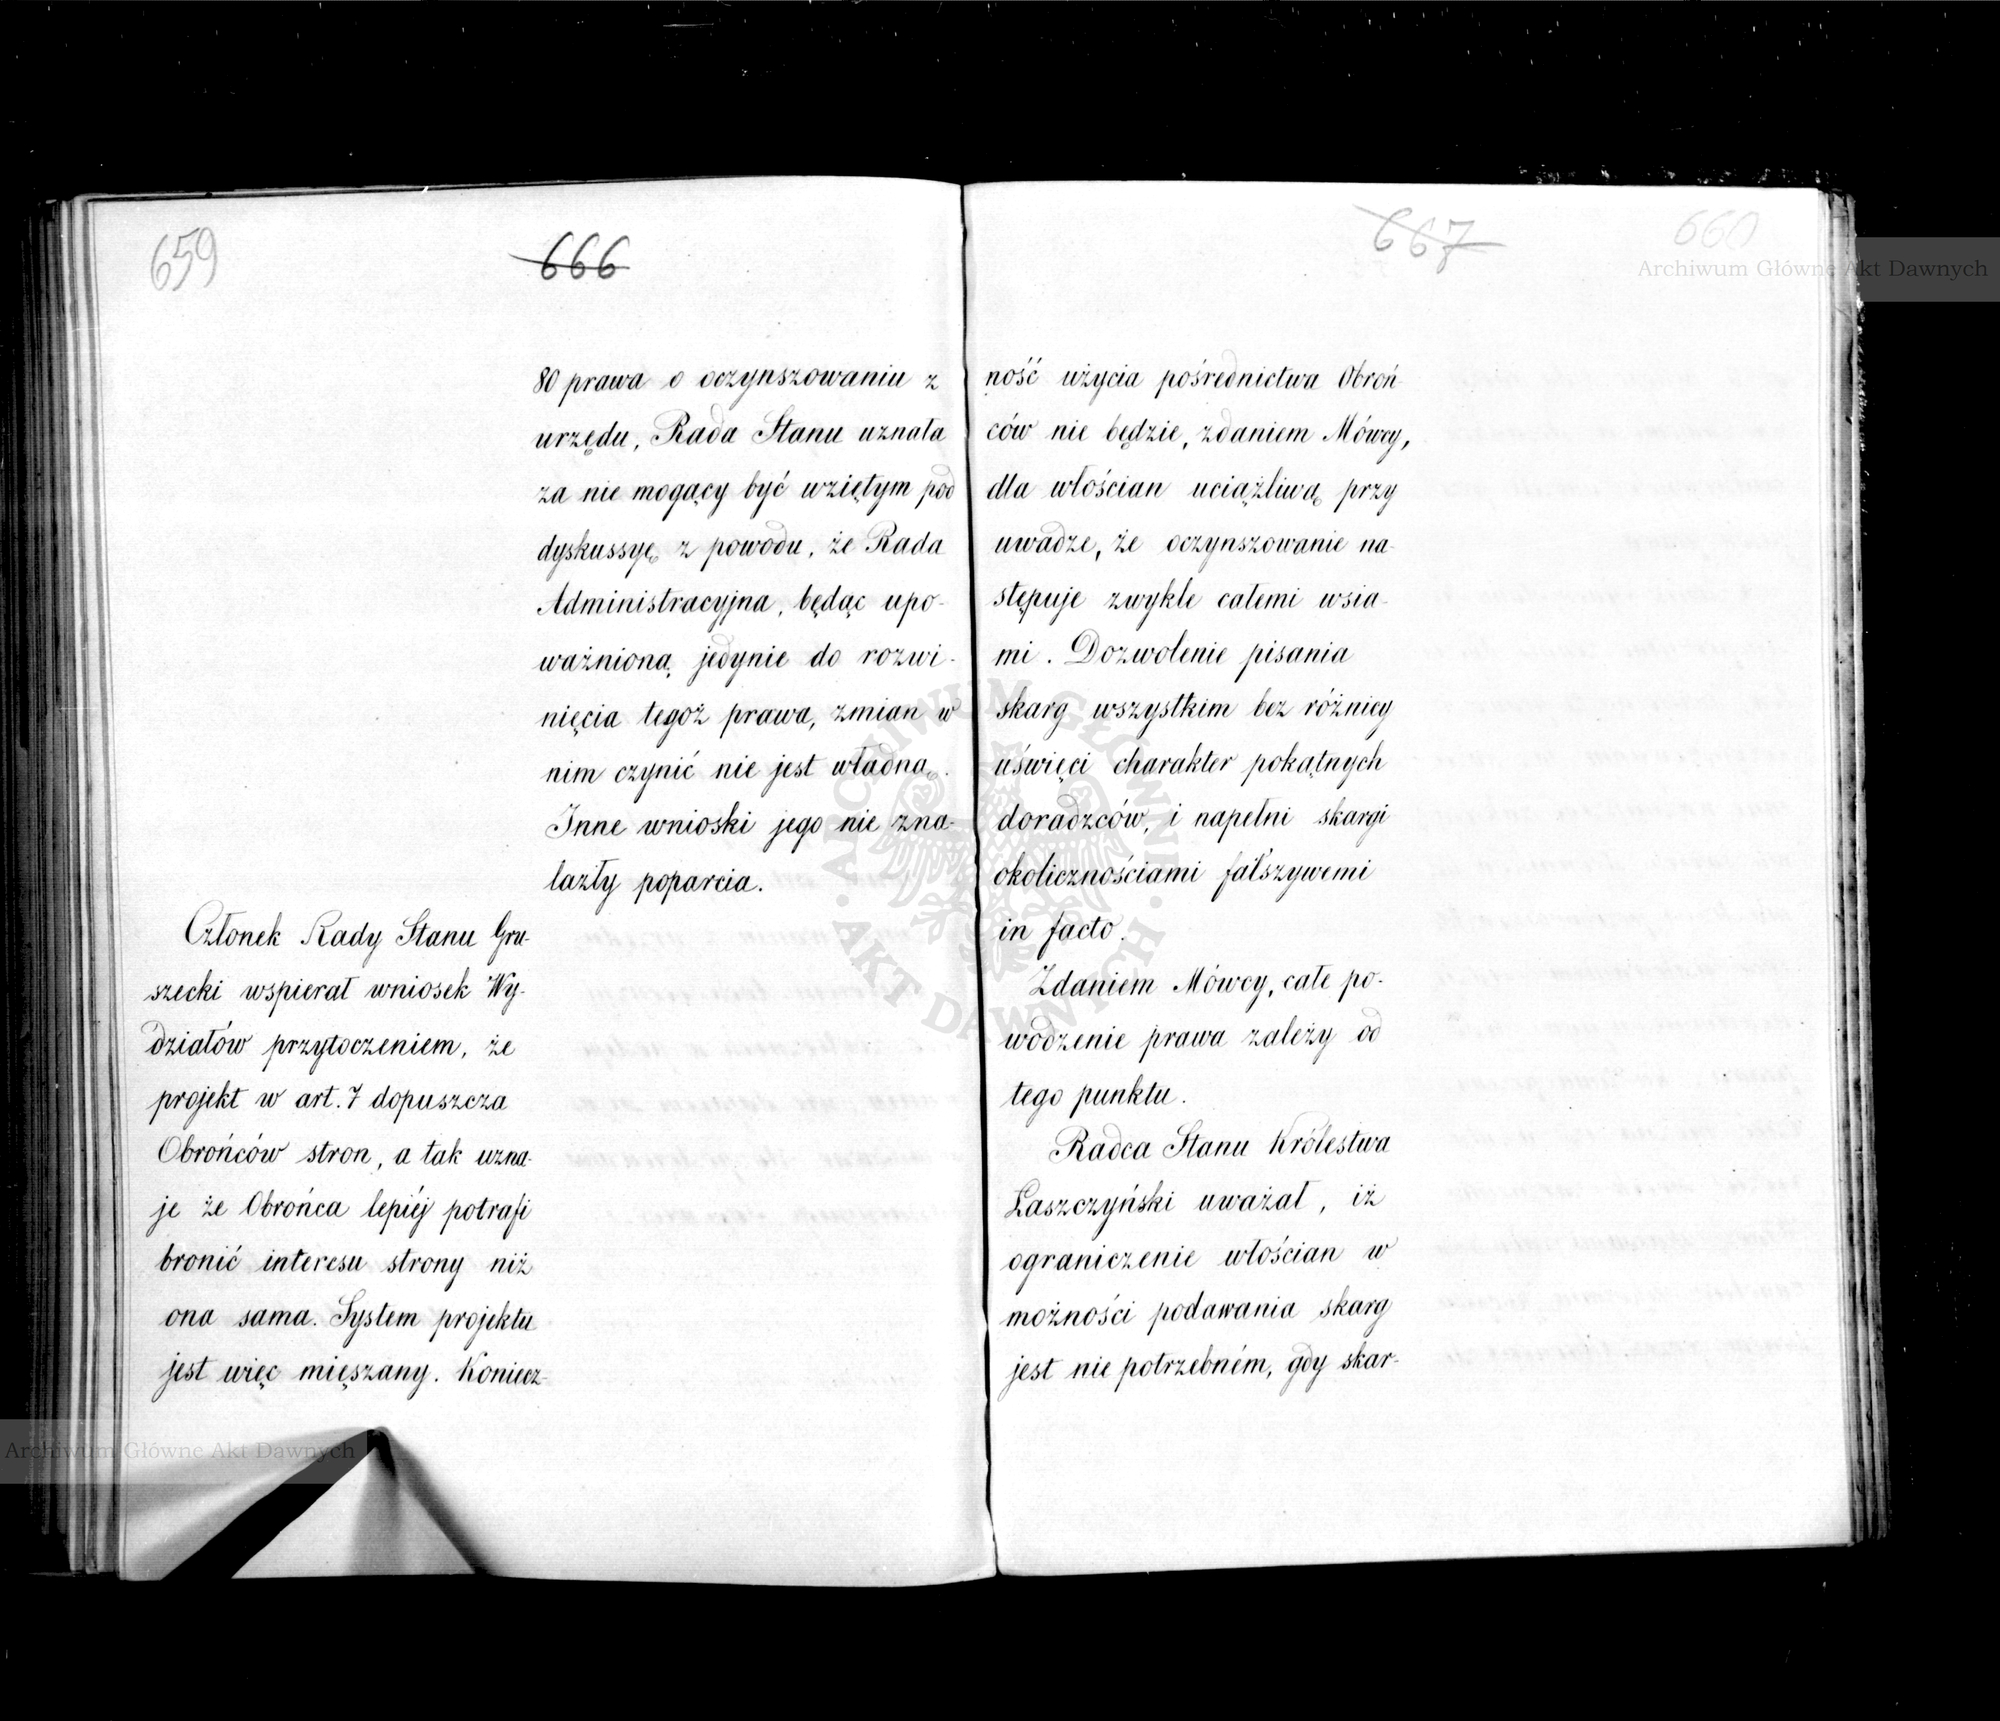 659
666
80 prawa o oczynszowaniu z
urzędu, Rada Stanu uznała
za nie mogący być wziętym pod
dyskussyę z powodu, że Rada
Administracyjna, będąc upo-
ważnioną jedynie do rozwi-
nięcia tegoż prawa, zmian w
nim czynić nie jest władną.
Inne wnioski jego nie zna-
lazły poparcia.
Członek Rady Stanu Gru-
szecki wspierał wniosek Wy-
działów przytoczeniem, że
projekt w art. 7 dopuszcza
Obrońców stron, a tak uzna-
je że Obrońca lepiéj potrafi
bronić interesu strony niż
ona sama. System projektu
jest więc mięszany. Koniecz-
667
660
ność użycia pośrednictwa Obroń-
ców nie będzie, zdaniem Mówcy,
dla włościan uciążliwą przy
uwadze, że oczynszowanie na-
stępuje zwykle całemi wsia-
mi. Dozwolenie pisania
skarg wszystkim bez różnicy
uświęci charakter pokątnych
doradzców, i napełni skargi
okolicznościami fałszywemi
in facto.
Zdaniem Mówcy, całe po-
wodzenie prawa zależy od
tego punktu.
Radca Stanu Królestwa
Łaszczyński uważał, iż
ograniczenie włościan w
możności podawania skarg
jest nie potrzebném, gdy skar-
Archiwum Główne Akt Dawnych
ARCHIWUM GŁÓWNE · AKT DAWNYCH ·
Archiwum Główne Akt Dawnych